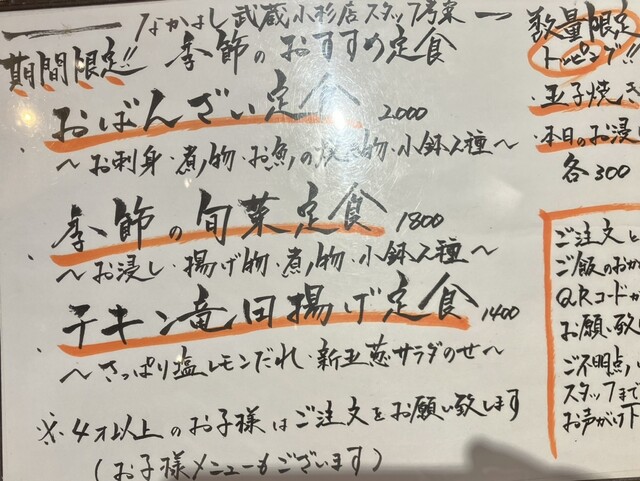 なかよし武蔵小杉店スタッフ考案
期間限定!! 季節のおすすめ定食
おばんざい定食 2000
～お刺身・煮物・お魚の焼き物・小鉢2種～
季節の旬菜定食 1800
～お浸し・揚げ物・煮物・小鉢2種～
チキン竜田揚げ定食 1400
～さっぱり塩レモンだれ・新玉葱サラダのせ～
※4才以上のお子様はご注文をお願い致します
(お子様メニューもございます)
数量限定
トッピング!!
玉子焼き
本日のお浸
各300
ご注文と
ご飯のおか
QRコードか
お願い致し
ご不明点
スタッフまで
お声がけ下